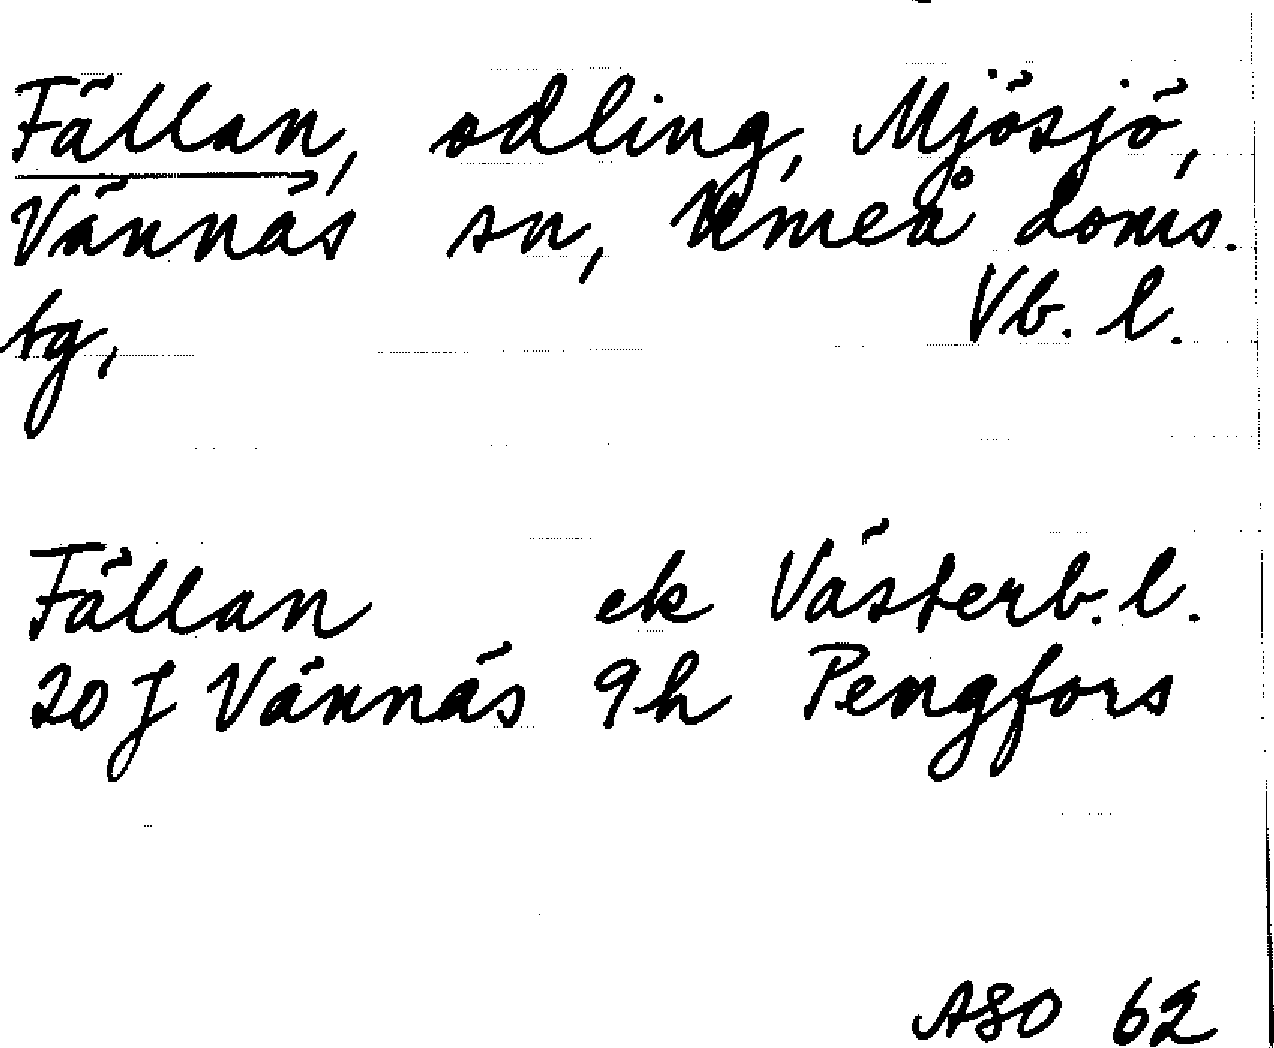 Fällan, odling, Mjösjö,
Vännäs sn, Umeå doms.
tg, Vb. l.
Fällan ek Västerb. l.
20 J Vännäs 9h Pengfors
ASO 62